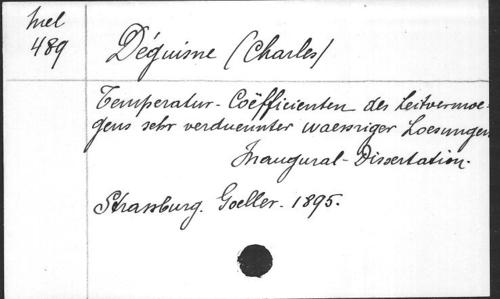 Mel
489
Déguisne (Charles)
Temperatur-Coëfficienten des Leitvermoe-
gens sehr verduennter waessriger Loesungen.
Inaugural-Dissertation.
Strassburg. Goeller. 1895.